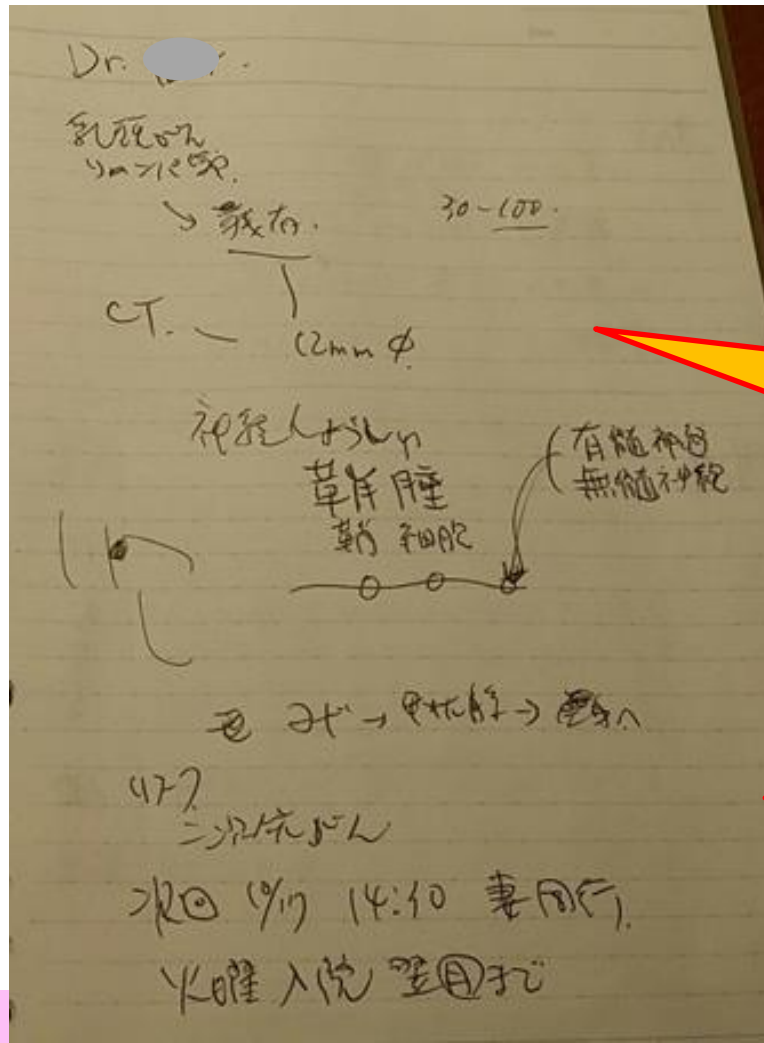 Dr.
乳頭がん
リンパ節
残存.
30-100.
CT.
12mmφ
神経しょうしゅ
鞘腫
鞘細胞
有髄神経
無髄神経
ヨード→甲状腺→
リスク
二次発がん
次回 10/17 14:10 妻同行.
火曜入院 翌月まで